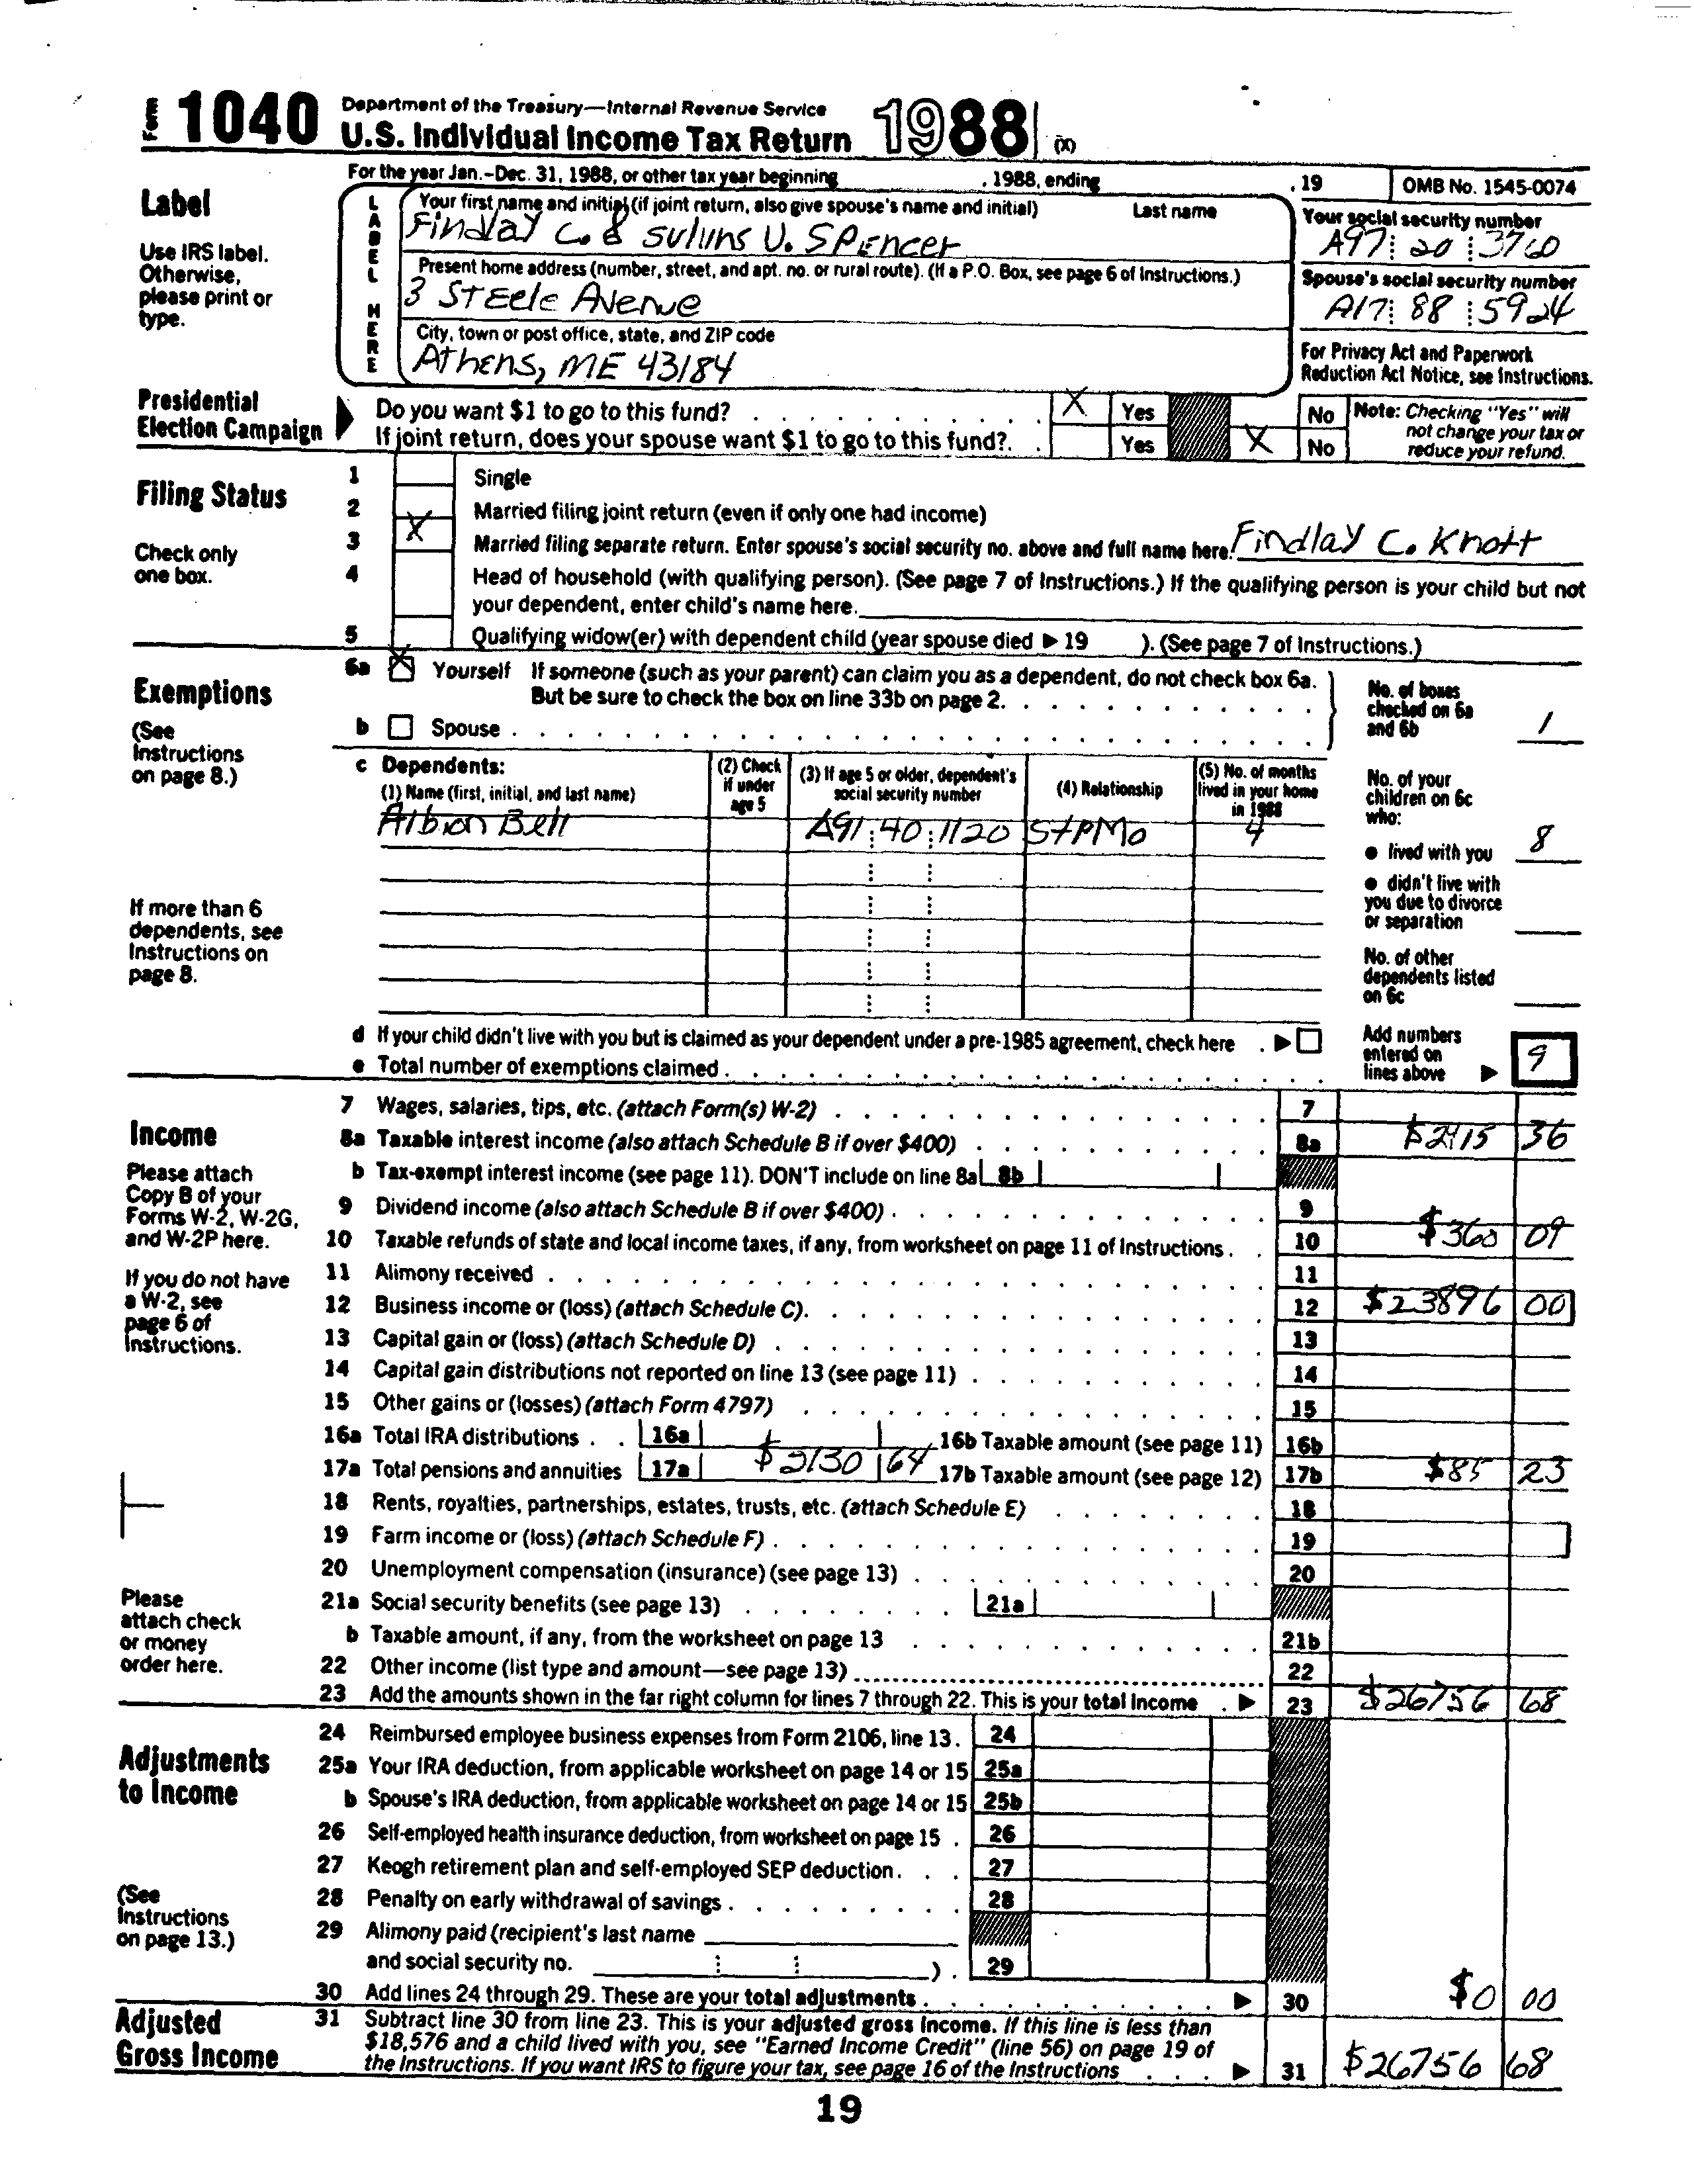 Form 1040 Department of the Treasury—Internal Revenue Service
U.S. Individual Income Tax Return 1988 (X)
For the year Jan.-Dec. 31, 1988, or other tax year beginning , 1988, ending , 19 OMB No. 1545-0074
Label
Use IRS label. Otherwise, please print or type.
LABEL HERE
Your first name and initial (if joint return, also give spouse's name and initial) Last name
Findlay C. & Suluns U. Spencer
Your social security number
A97 20 3760
Present home address (number, street, and apt. no. or rural route). (If a P.O. Box, see page 6 of Instructions.)
3 Steele Avenue
Spouse's social security number
A17 88 5924
City, town or post office, state, and ZIP code
Athens, ME 43184
For Privacy Act and Paperwork Reduction Act Notice, see Instructions.
Presidential Election Campaign
Do you want $1 to go to this fund? X Yes No
If joint return, does your spouse want $1 to go to this fund? Yes X No
Note: Checking "Yes" will not change your tax or reduce your refund.
Filing Status
Check only one box.
1 Single
2 Married filing joint return (even if only one had income)
3 X Married filing separate return. Enter spouse's social security no. above and full name here. Findlay C. Knott
4 Head of household (with qualifying person). (See page 7 of Instructions.) If the qualifying person is your child but not
your dependent, enter child's name here.
5 Qualifying widow(er) with dependent child (year spouse died ▶ 19 ). (See page 7 of Instructions.)
Exemptions
(See Instructions on page 8.)
6a X Yourself If someone (such as your parent) can claim you as a dependent, do not check box 6a.
But be sure to check the box on line 33b on page 2.
b Spouse
No. of boxes checked on 6a and 6b 1
c Dependents:
(1) Name (first, initial, and last name) (2) Check if under age 5 (3) If age 5 or older, dependent's social security number (4) Relationship (5) No. of months lived in your home in 1988
Albion Bell A91 40 1120 StPMo 4
No. of your children on 6c who:
● lived with you 8
● didn't live with you due to divorce or separation
No. of other dependents listed on 6c
If more than 6 dependents, see Instructions on page 8.
d If your child didn't live with you but is claimed as your dependent under a pre-1985 agreement, check here ▶
e Total number of exemptions claimed
Add numbers entered on lines above ▶ 9
Income
Please attach Copy B of your Forms W-2, W-2G, and W-2P here.
If you do not have a W-2, see page 6 of Instructions.
Please attach check or money order here.
7 Wages, salaries, tips, etc. (attach Form(s) W-2) 7
8a Taxable interest income (also attach Schedule B if over $400) 8a $2415 36
b Tax-exempt interest income (see page 11). DON'T include on line 8a 8b
9 Dividend income (also attach Schedule B if over $400) 9
10 Taxable refunds of state and local income taxes, if any, from worksheet on page 11 of Instructions 10 $360 09
11 Alimony received 11
12 Business income or (loss) (attach Schedule C) 12 $23896 00
13 Capital gain or (loss) (attach Schedule D) 13
14 Capital gain distributions not reported on line 13 (see page 11) 14
15 Other gains or (losses) (attach Form 4797) 15
16a Total IRA distributions 16a 16b Taxable amount (see page 11) 16b
17a Total pensions and annuities 17a $2130 64 17b Taxable amount (see page 12) 17b $85 23
18 Rents, royalties, partnerships, estates, trusts, etc. (attach Schedule E) 18
19 Farm income or (loss) (attach Schedule F) 19
20 Unemployment compensation (insurance) (see page 13) 20
21a Social security benefits (see page 13) 21a
b Taxable amount, if any, from the worksheet on page 13 21b
22 Other income (list type and amount—see page 13) 22
23 Add the amounts shown in the far right column for lines 7 through 22. This is your total income ▶ 23 $26756 68
Adjustments to Income
(See Instructions on page 13.)
24 Reimbursed employee business expenses from Form 2106, line 13. 24
25a Your IRA deduction, from applicable worksheet on page 14 or 15 25a
b Spouse's IRA deduction, from applicable worksheet on page 14 or 15 25b
26 Self-employed health insurance deduction, from worksheet on page 15 26
27 Keogh retirement plan and self-employed SEP deduction 27
28 Penalty on early withdrawal of savings 28
29 Alimony paid (recipient's last name
and social security no. ). 29
30 Add lines 24 through 29. These are your total adjustments ▶ 30 $0 00
Adjusted Gross Income
31 Subtract line 30 from line 23. This is your adjusted gross income. If this line is less than
$18,576 and a child lived with you, see "Earned Income Credit" (line 56) on page 19 of
the Instructions. If you want IRS to figure your tax, see page 16 of the Instructions ▶ 31 $26756 68
19